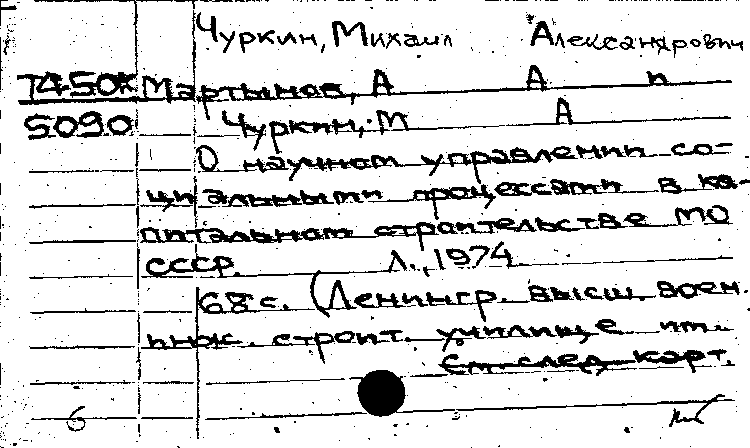 Чуркин, Михаил Александрович
Т4-50К Мартынов, А А п
5090 Чуркин, М А
О научном управлении со-
циальными процессами в ка-
питальном строительстве МО
СССР. Л., 1974.
68 с. (Ленингр. высш. воен.
инж. строит. училище им.
См. след карт.
6